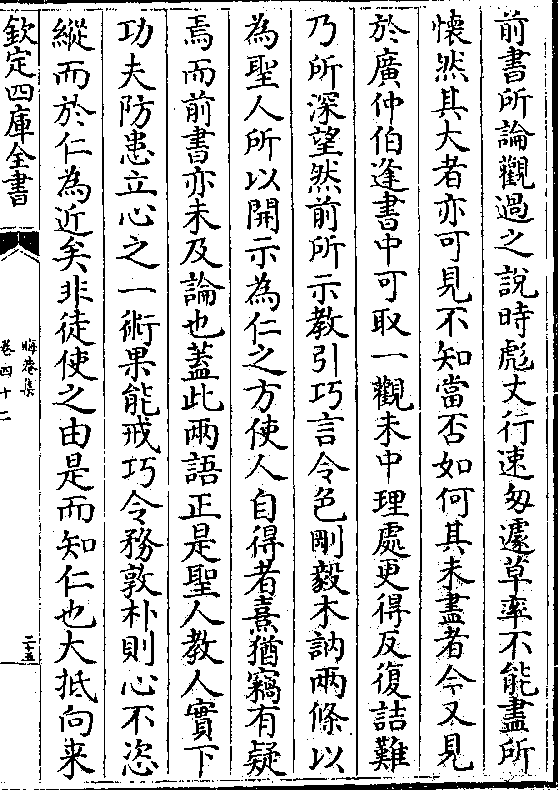 前書所論觀過之説時彪丈行速匆遽草率不能盡所
懐然其大者亦可見不知當否如何其未盡者今又見
於廣仲伯逢書中可取一觀未中理處更得反復詰難
乃所深望然前所示教引巧言令色剛毅木訥兩條以
為聖人所以開示為仁之方使人自得者熹猶竊有疑
焉而前書亦未及論也蓋此兩語正是聖人教人實下
功夫防患立心之一術果能戒巧令務敦朴則心不恣
縱而於仁為近矣非徒使之由是而知仁也大抵向来
欽定四庫全書
晦菴集
卷四十二
二十五